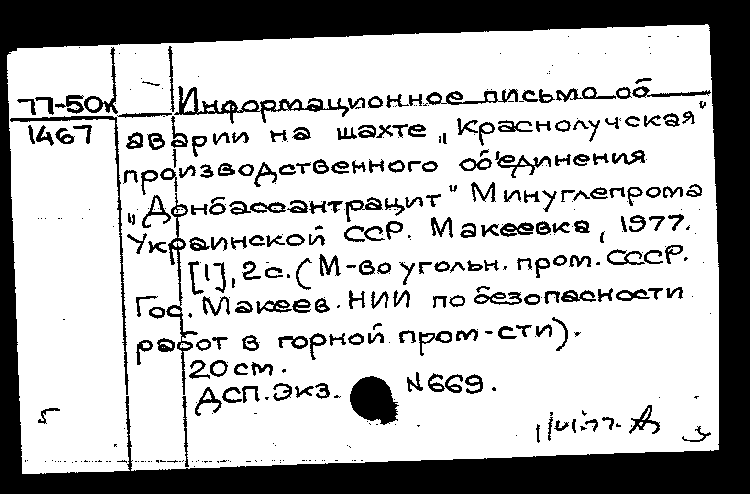 77-50к
1467
Информационное письмо об
аварии на шахте „Краснолучская"
производственного об'единения
„Донбассантрацит" Минуглепрома
Украинской ССР. Макеевка, 1977.
[1], 2с. (М-во угольн. пром. СССР.
Гос. Макеев. НИИ по безопасности
работ в горной пром-сти).
20см.
ДСП. Экз. N669.
5